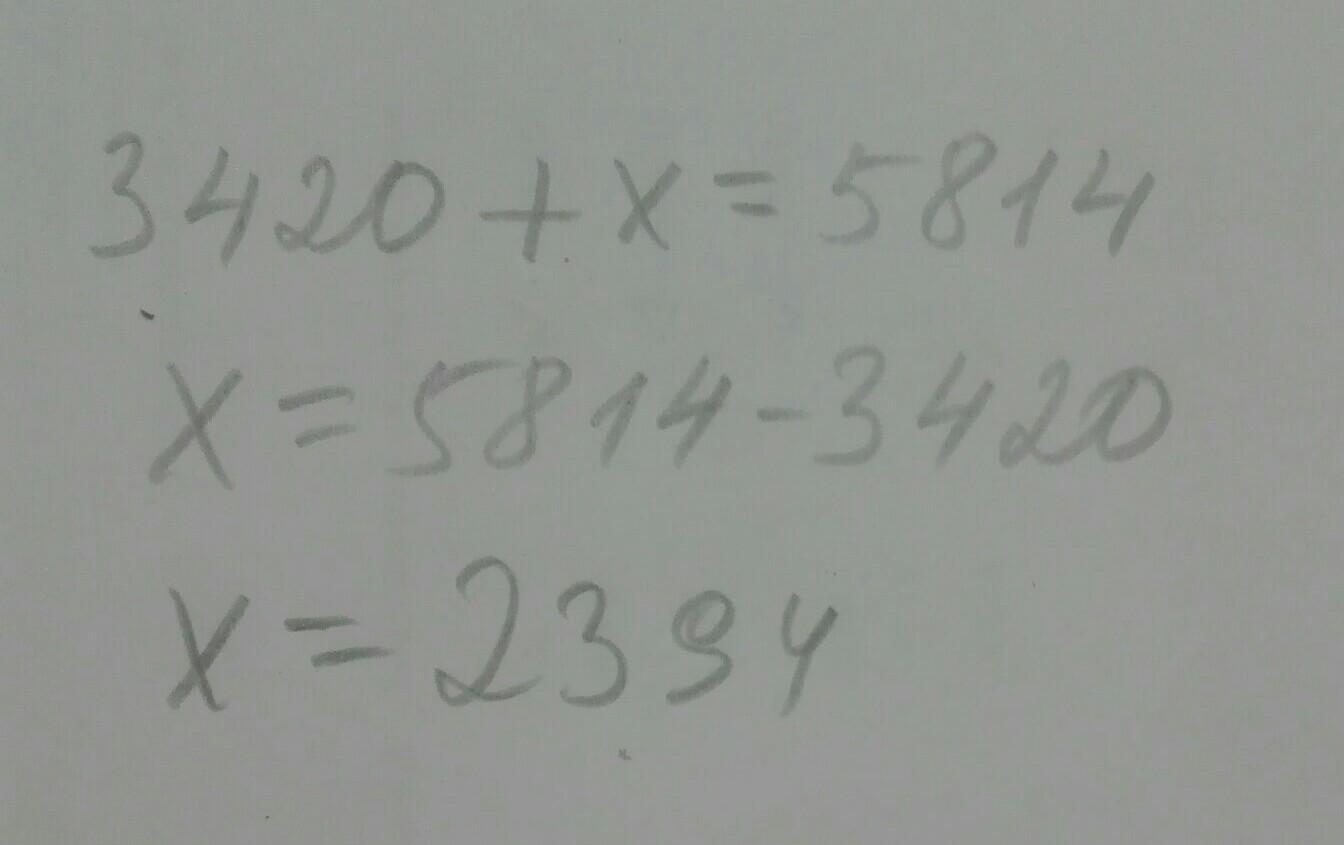 3420 + x = 5814
x = 5814 - 3420
x = 2394